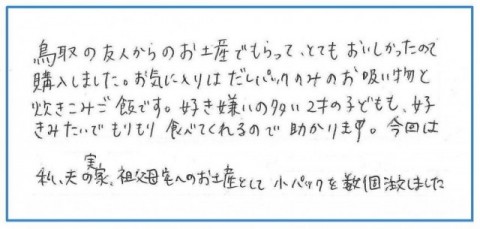 鳥取の友人からのお土産でもらって、とてもおいしかったので
購入しました。お気に入りはだしパックのみのお吸い物と
炊きこみご飯です。好き嫌いの多い2才の子どもも、好
きみたいでもりもり食べてくれるので助かります。今回は
私、夫の実家、祖父母宅へのお土産として小パックを数個注文しました